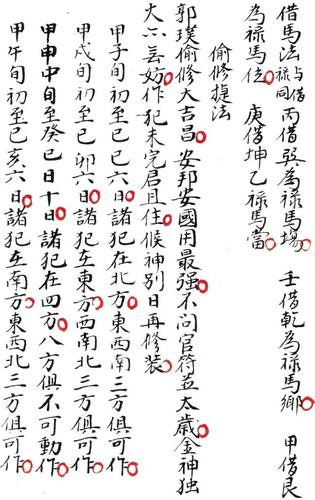 借馬法與借祿同 丙借巽為祿馬場 壬借乾為祿馬鄉 甲借艮
為祿馬位 庚借坤乙祿馬當
偷修捷法
郭璞偷修大吉昌 安邦安國用最强 不问官符並太歲 金神独
大亦無妨 作犯未完君且住 候神别日再修装
甲子旬初至己巳六日 諸犯在北方 東西南三方俱可作
甲戌旬初至己卯六日 諸犯在東方 西南北三方俱可作
甲申中旬至癸巳日十日 諸犯在四方 八方俱不可動作
甲午旬初至己亥六日 諸犯在南方 東西北三方俱可作